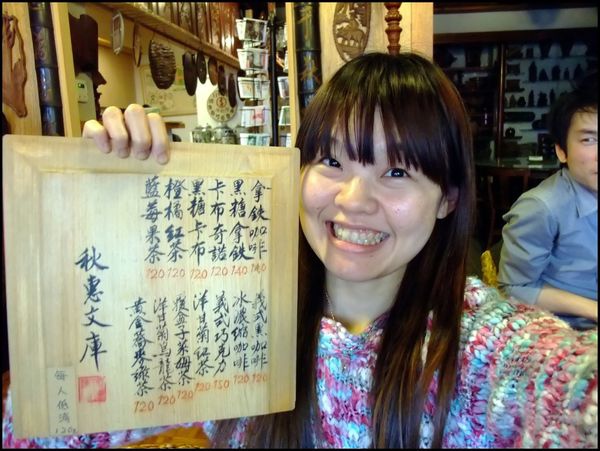 拿鐵咖啡 140
黑糖拿鐵 140
卡布奇諾 120
黑糖卡布 120
橙橘紅茶 120
藍莓果茶 120
美式黑咖啡 120
冰濃縮咖啡 120
義式巧克力 150
洋甘菊紅茶 120
覆盆子茶 120
洋菊烏龍茶 120
黃金蕎麥綠茶 120
秋惠文庫
每人低消120